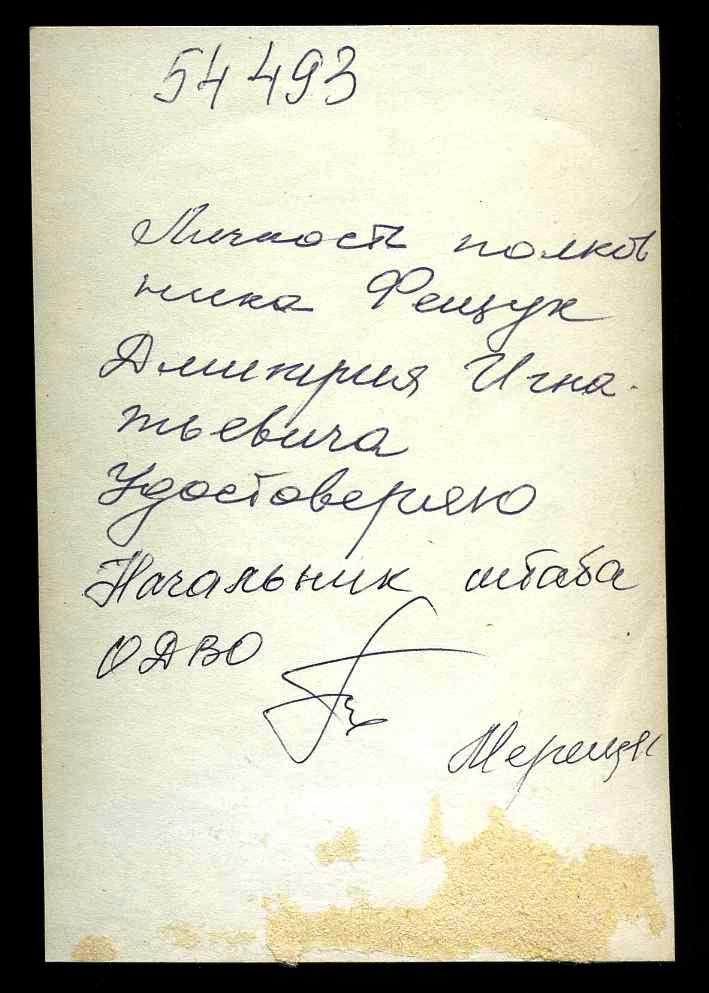 54 493
Личность полков
ника Фещук
Дмитрия Игна-
тьевича
Удостоверяю
Начальник штаба
ОДВО